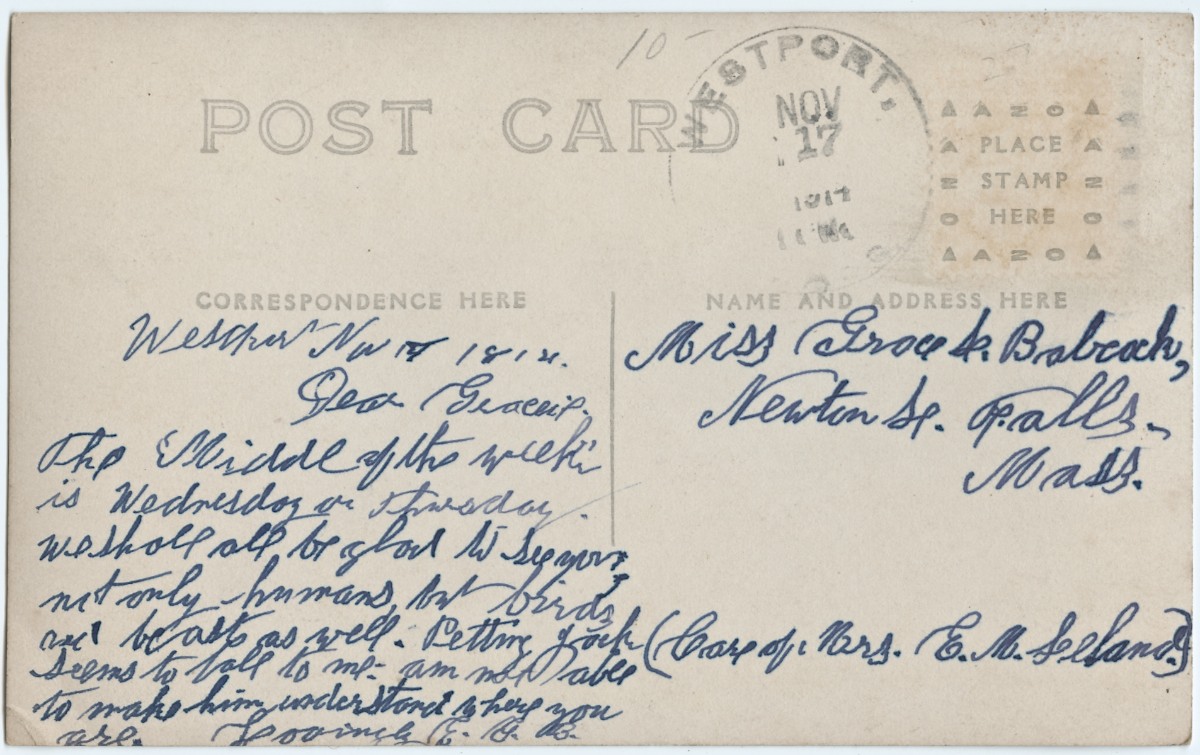 10-
POST CARD
WESTPORT,
NOV
17
1914
AZO
PLACE
STAMP
HERE
AZO
CORRESPONDENCE HERE
NAME AND ADDRESS HERE
Westport Nov 17 1914.
Dear Graceie.
The Middle of the week
is Wednesday or Thursday.
we shall all be glad to see you,
not only humans, but birds
and beasts as well. Petting Jack
seems to fall to me - am not able
to make him understand where you
are. Lovingly E. B.
Miss Grace Babcock,
Newton Falls.
Mass.
(Care of Mrs. E. M. Leland.)